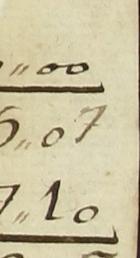 „00
5„07
7„10